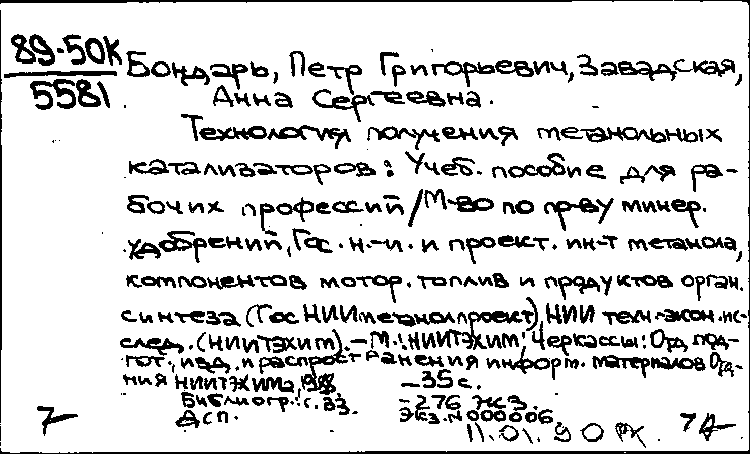 89-50К
5581
Бондарь, Петр Григорьевич, Завадская,
Анна Сергеевна.
Технология получения метанольных
катализаторов: Учеб. пособие для ра-
бочих профессий / М-во по пр-ву минер.
удобрений, Гос. н.-и. и проект. ин-т метанола,
компонентов мотор. топлив и продуктов орган.
синтеза (Гос НИИметанолпроект), НИИ техн.-экон. ис-
след. (НИИТЭХИМ). - М.: НИИТЭХИМ; Черкассы: Отд. под-
гот., изд. и распространения информ. материалов Отд-
ния НИИТЭХИМа, - 35 с.
Библиогр.: с. 33. - 276 экз.
Дсп. Экз. N 000006.
11.01.90